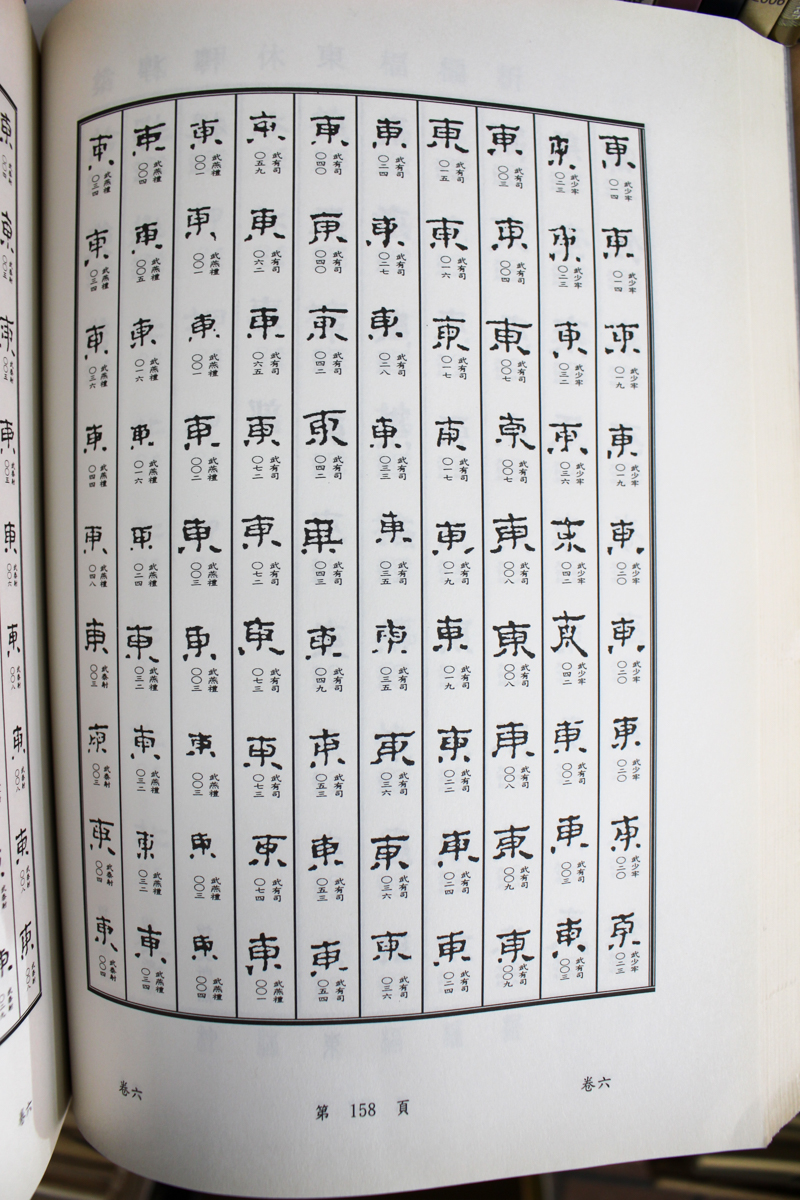 東 武少牢 〇一四 東 武少牢 〇一四 東 武少牢 〇一九 東 武少牢 〇一九 東 武少牢 〇二〇 東 武少牢 〇二〇 東 武少牢 〇二〇 東 武少牢 〇二〇 東 武少牢 〇二三
東 武少牢 〇二三 東 武少牢 〇二三 東 武少牢 〇三二 東 武少牢 〇三六 東 武少牢 〇四二 東 武少牢 〇四二 東 武有司 〇〇二 東 武有司 〇〇三 東 武有司 〇〇三
東 武有司 〇〇三 東 武有司 〇〇四 東 武有司 〇〇七 東 武有司 〇〇七 東 武有司 〇〇八 東 武有司 〇〇八 東 武有司 〇〇八 東 武有司 〇〇九 東 武有司 〇〇九
東 武有司 〇一五 東 武有司 〇一六 東 武有司 〇一七 東 武有司 〇一七 東 武有司 〇一九 東 武有司 〇一九 東 武有司 〇二二 東 武有司 〇二四 東 武有司 〇二四
東 武有司 〇二四 東 武有司 〇二七 東 武有司 〇二八 東 武有司 〇三三 東 武有司 〇三五 東 武有司 〇三五 東 武有司 〇三六 東 武有司 〇三六 東 武有司 〇三六
東 武有司 〇四〇 東 武有司 〇四〇 東 武有司 〇四二 東 武有司 〇四二 東 武有司 〇四三 東 武有司 〇四九 東 武有司 〇五三 東 武有司 〇五三 東 武有司 〇五四
東 武有司 〇五九 東 武有司 〇六二 東 武有司 〇六五 東 武有司 〇七二 東 武有司 〇七二 東 武有司 〇七三 東 武有司 〇七三 東 武有司 〇七四 東 〇〇一
東 武燕禮 〇〇一 東 武燕禮 〇〇一 東 武燕禮 〇〇一 東 武燕禮 〇〇二 東 武燕禮 〇〇三 東 武燕禮 〇〇三 東 武燕禮 〇〇三 東 武燕禮 〇〇三 東 武燕禮 〇〇四
東 武燕禮 〇〇四 東 武燕禮 〇〇五 東 武燕禮 〇一六 東 武燕禮 〇一六 東 武燕禮 〇二四 東 武燕禮 〇三二 東 武燕禮 〇三二 東 武燕禮 〇三二 東 武燕禮 〇三四
東 武燕禮 〇三四 東 武燕禮 〇三四 東 武燕禮 〇三六 東 武燕禮 〇四四 東 武燕禮 〇四八 東 武泰射 〇〇三 東 武泰射 〇〇三 東 武泰射 〇〇四 東 武泰射 〇〇四
卷六
第 158 頁
卷六